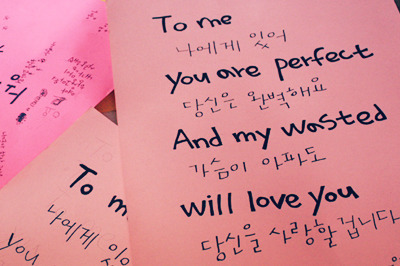 To me
나에게 있어
You are perfect
당신은 완벽해요
And my wasted
가슴이 아파도
will love you
당신을 사랑할겁니다
To me
나에게 있
You